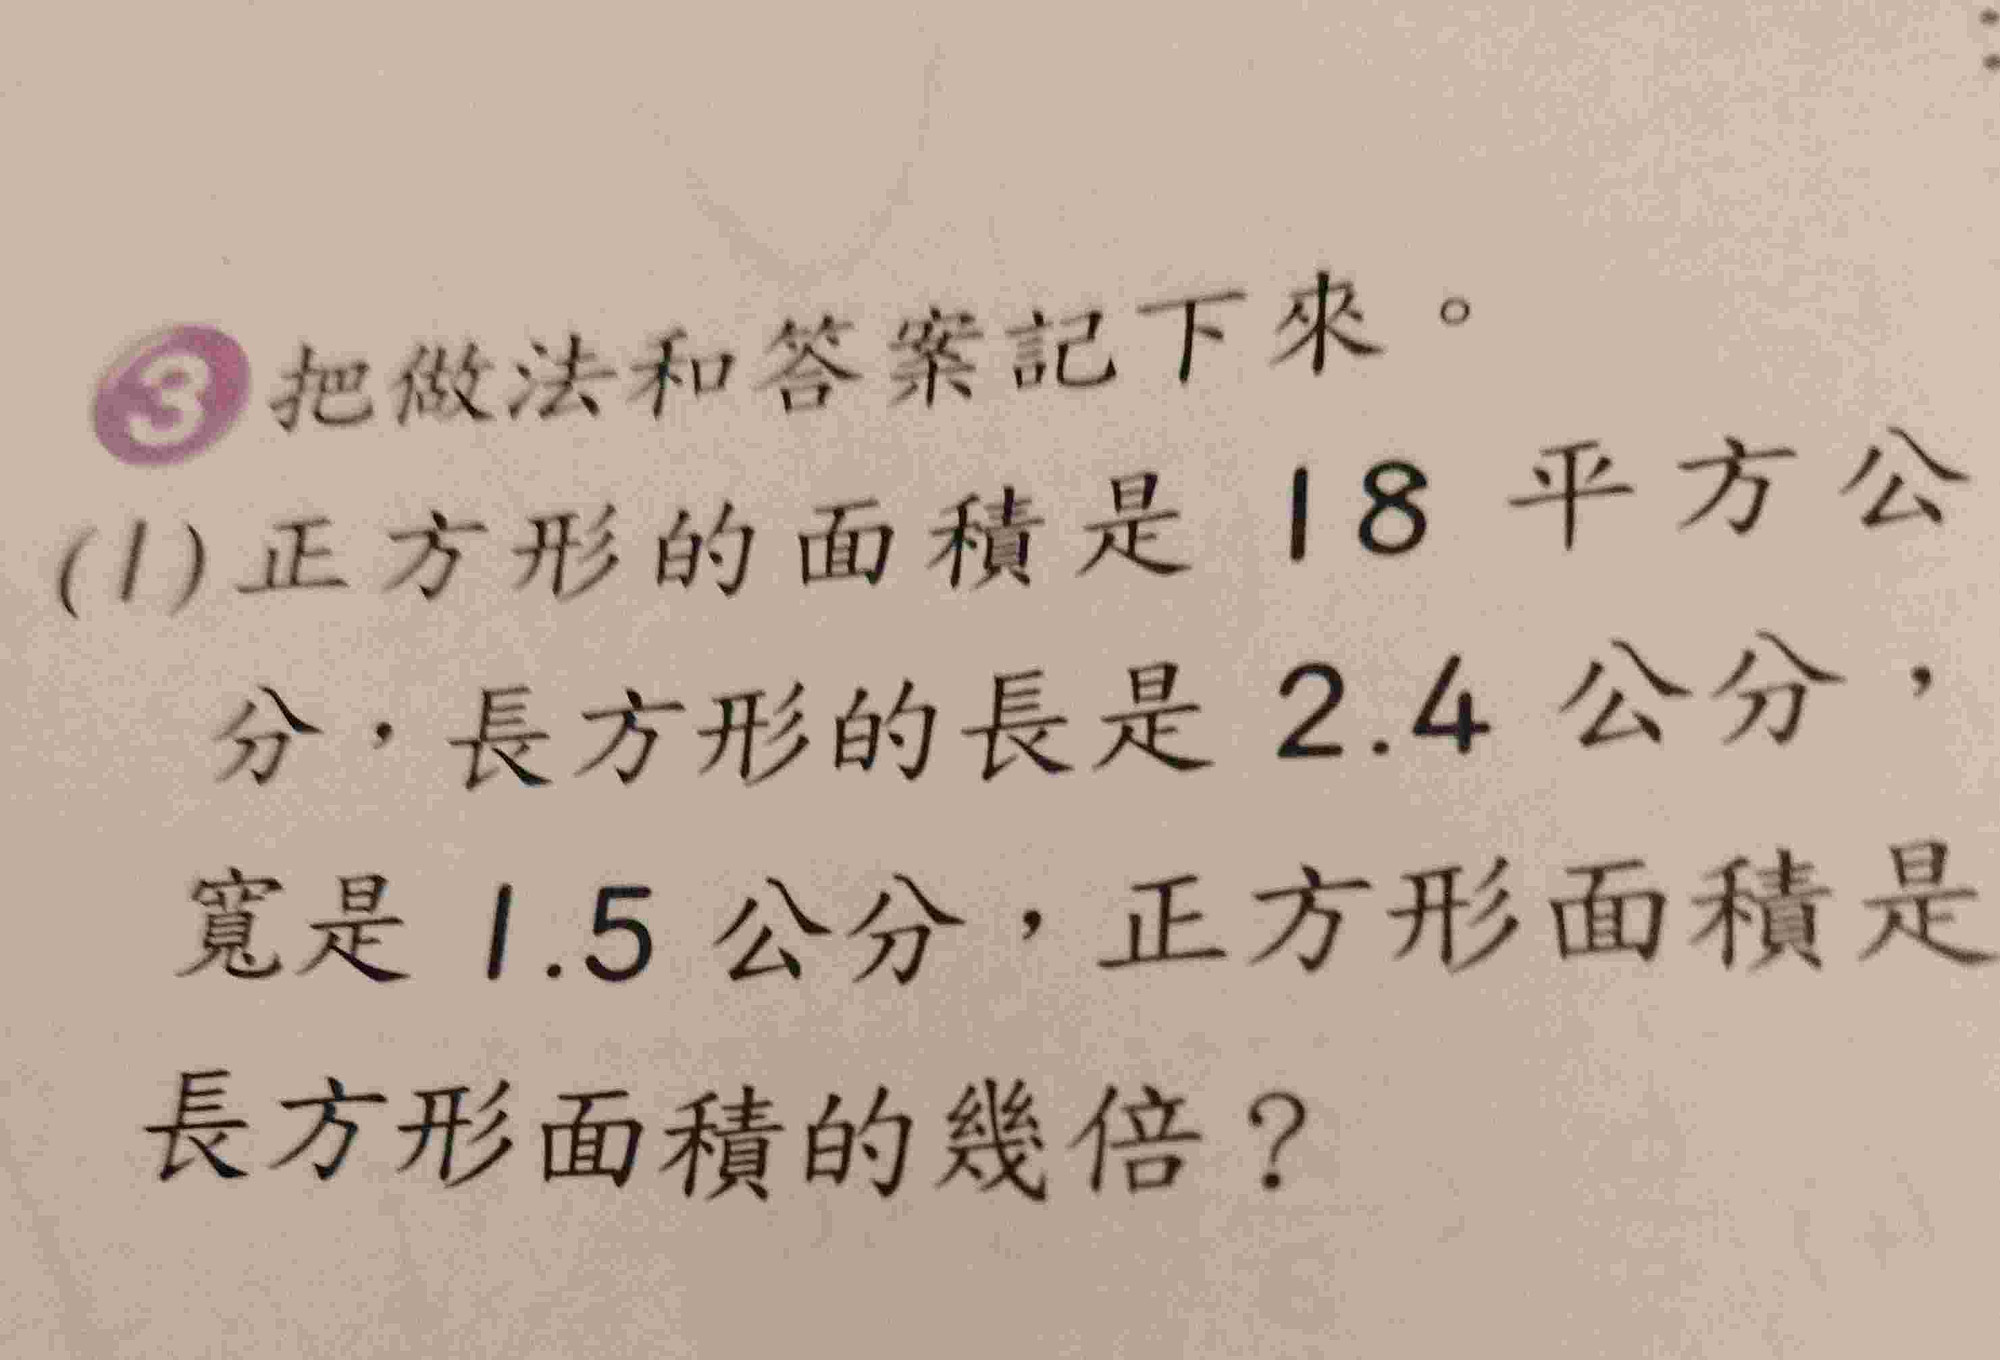 3 把做法和答案記下來。
(1)正方形的面積是 18 平方公
分，長方形的長是 2.4 公分，
寬是 1.5 公分，正方形面積是
長方形面積的幾倍？